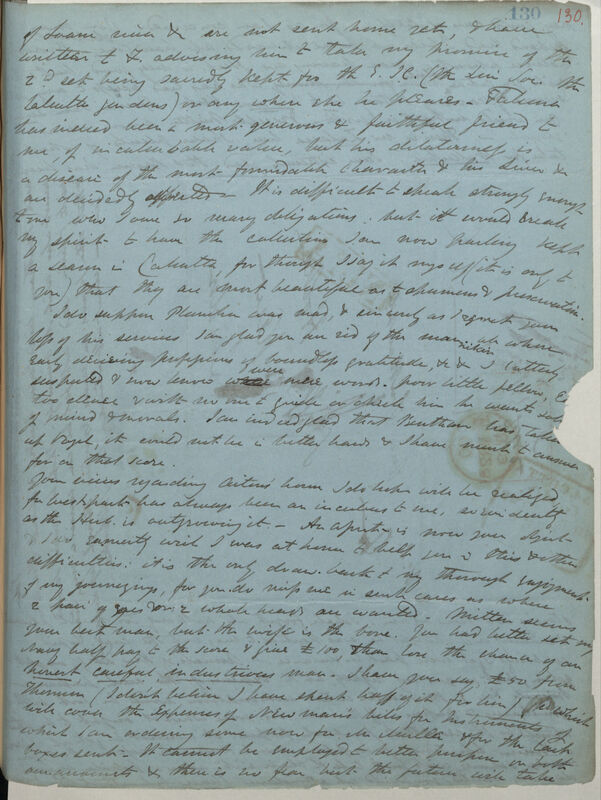 130 130.
of Assam &c & are not sent home yet, & have
written to F. advising him to take my promise of the
2d set being sacredly kept for the E. I C. (the Lin Soc. the
Calcutta Gardens) or any where else he pleases – Falconer
has indeed been a most generous & faithful friend to
me of incalculable value, but his dilatoriness is
a disease of the most formidable character & his liver &c
are decidedly affected – It is difficult to speak strongly enough
to one who I owe so many obligations. but it would break
my spirit to have the collections I am now making kept
a season in Calcutta, for though I say it myself (it is only to
you) that they are most beautiful as to specimens & preservation.
I do suppose Planchon was mad, & sincerely as I regret your
loss of his services I am glad you are rid of the man, at whose
early decoying professions of boundless gratitude, &c &c I utterly
suspected & now know were mere words. Poor little fellow,
too clever & with no one to guide or check him he wants
of mind & morals. I am indeed glad that Bentham has taken
up it could not be in better hands & I have much to answer
for on that score.
Your views regarding Aiton's house I do hope will be realized
for West park has always been an incubus to me, so evidently
as the Herb. is outgrowing it. – As a
I do earnestly wish I was at home to help you in this & other
difficulties: it is the only draw-back to my thorough enjoyment
of my journeyings, for you do miss me in such cases as where
2 pair of eyes or 2 whole heads are wanted. Mitten seems
your best man, but the wife is the bore. You had better set my
Navy half pay to the score & give £100, than lose the chance of an
honest careful industrious man. I have you say £50 from
(I don't believe I have spent half of it for him) which
will cover the Expenses of Newman's bills for Instruments of
which I am ordering some now for & for the last
boxes sent. It cannot be employed to better purpose on both
our accounts & there is no fear but the future will take